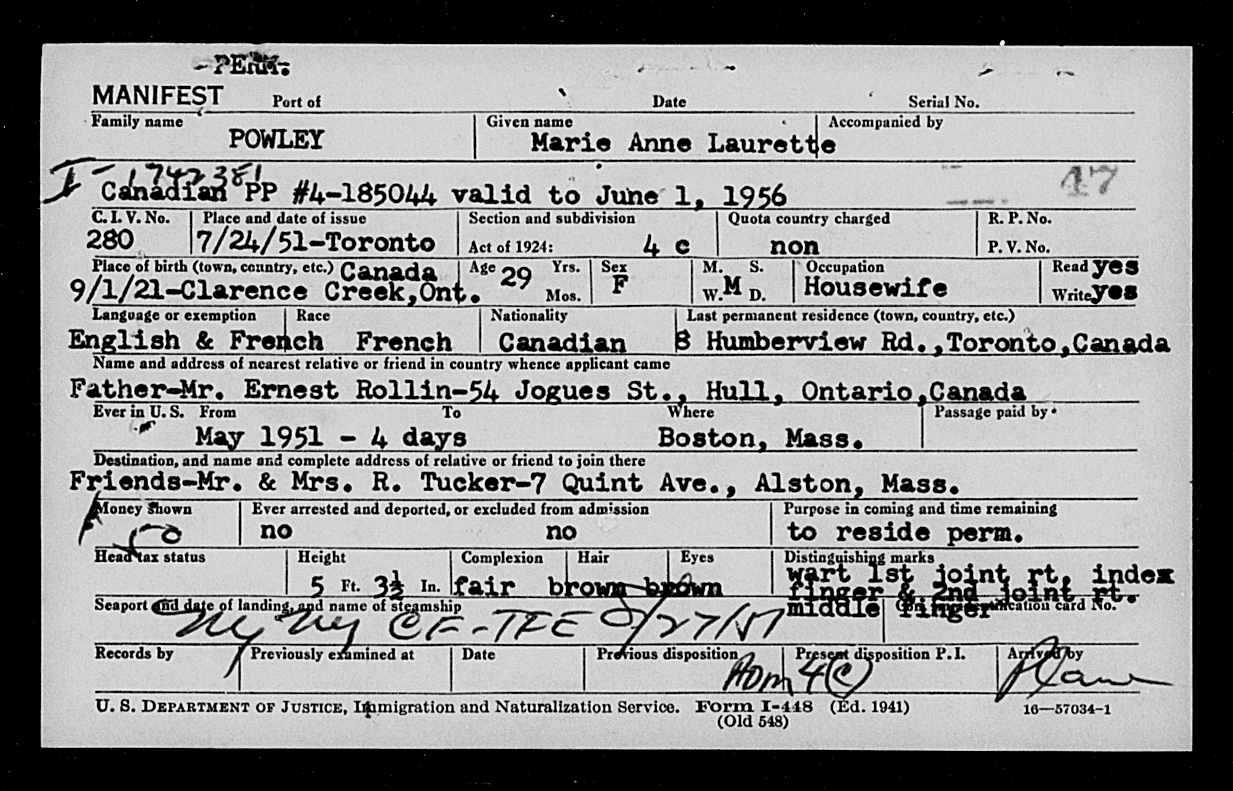 - PERM.
MANIFEST Port of Date Serial No.
Family name Given name Accompanied by
POWLEY Marie Anne Laurette
I - 1742381 47
Canadian PP #4-185044 valid to June 1, 1956
C. I. V. No. Place and date of issue Section and subdivision Quota country charged R. P. No.
280 7/24/51-Toronto Act of 1924: 4 c non P. V. No.
Place of birth (town, country, etc.) Canada Age 29 Yrs. Sex M. S. Occupation Read yes
9/1/21-Clarence Creek,Ont. Mos. F W. M D. Housewife Write yes
Language or exemption Race Nationality Last permanent residence (town, country, etc.)
English & French French Canadian 8 Humberview Rd.,Toronto,Canada
Name and address of nearest relative or friend in country whence applicant came
Father-Mr. Ernest Rollin-54 Jogues St., Hull, Ontario,Canada
Ever in U. S. From To Where Passage paid by
May 1951 - 4 days Boston, Mass.
Destination, and name and complete address of relative or friend to join there
Friends-Mr. & Mrs. R. Tucker-7 Quint Ave., Alston, Mass.
Money shown Ever arrested and deported, or excluded from admission Purpose in coming and time remaining
50 no no to reside perm.
Head tax status Height Complexion Hair Eyes Distinguishing marks
5 Ft. 3½ In. fair brown brown wart 1st joint rt. index
finger & 2nd joint rt.
middle finger
Seaport and date of landing, and name of steamship identification card No.
Records by Previously examined at Date Previous disposition Present disposition P. I. Arrived by
Adm 4(c)
U. S. DEPARTMENT OF JUSTICE, Immigration and Naturalization Service. Form I-448 (Ed. 1941) 16—57034-1
(Old 548)